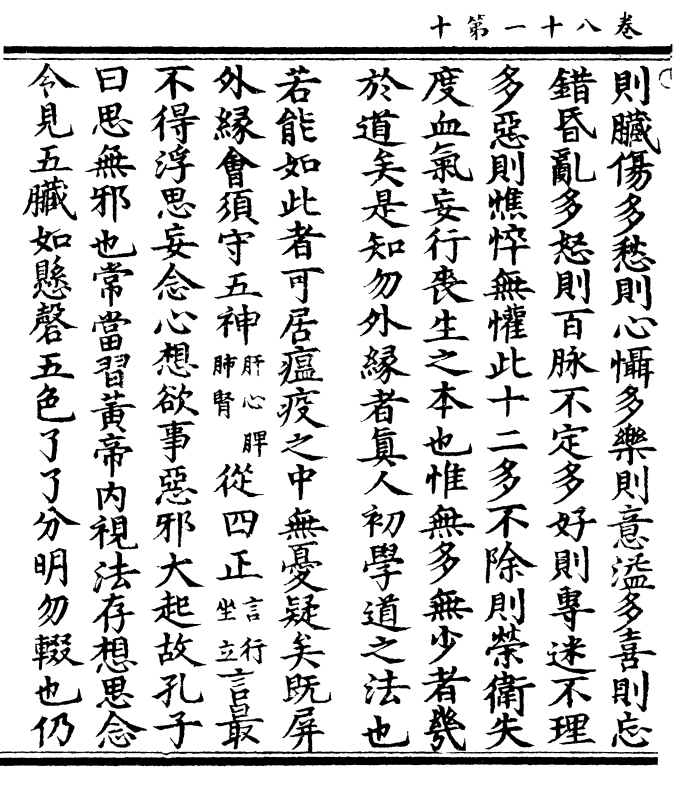 卷八十一第十
則臓傷多愁則心懾多樂則意溢多喜則忘
錯昏亂多怒則百脉不定多好則專迷不理
多惡則憔悴無懽此十二多不除則榮衛失
度血氣妄行喪生之本也惟無多無少者幾
於道矣是知勿外緣者真人初學道之法也
若能如此者可居瘟疫之中無憂疑矣既屏
外緣會須守五神肝心脾肺腎從四正言行坐立言最
不得浮思妄念心想欲事惡邪大起故孔子
曰思無邪也常當習黃帝內視法存想思念
令見五臓如懸磬五色了了分明勿輟也仍